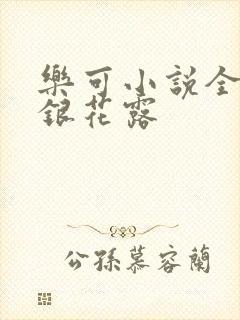 樂可小說全
銀花露
公孫慕容蘭